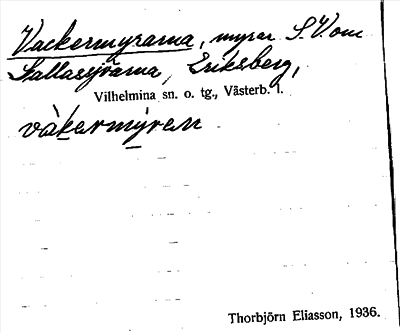 Vackermyrarna, myrar S. Vom
Sallasjöarna, Eriksberg,
Vilhelmina sn. o. tg., Västerb. l.
vàkermýren
Thorbjörn Eliasson, 1936.